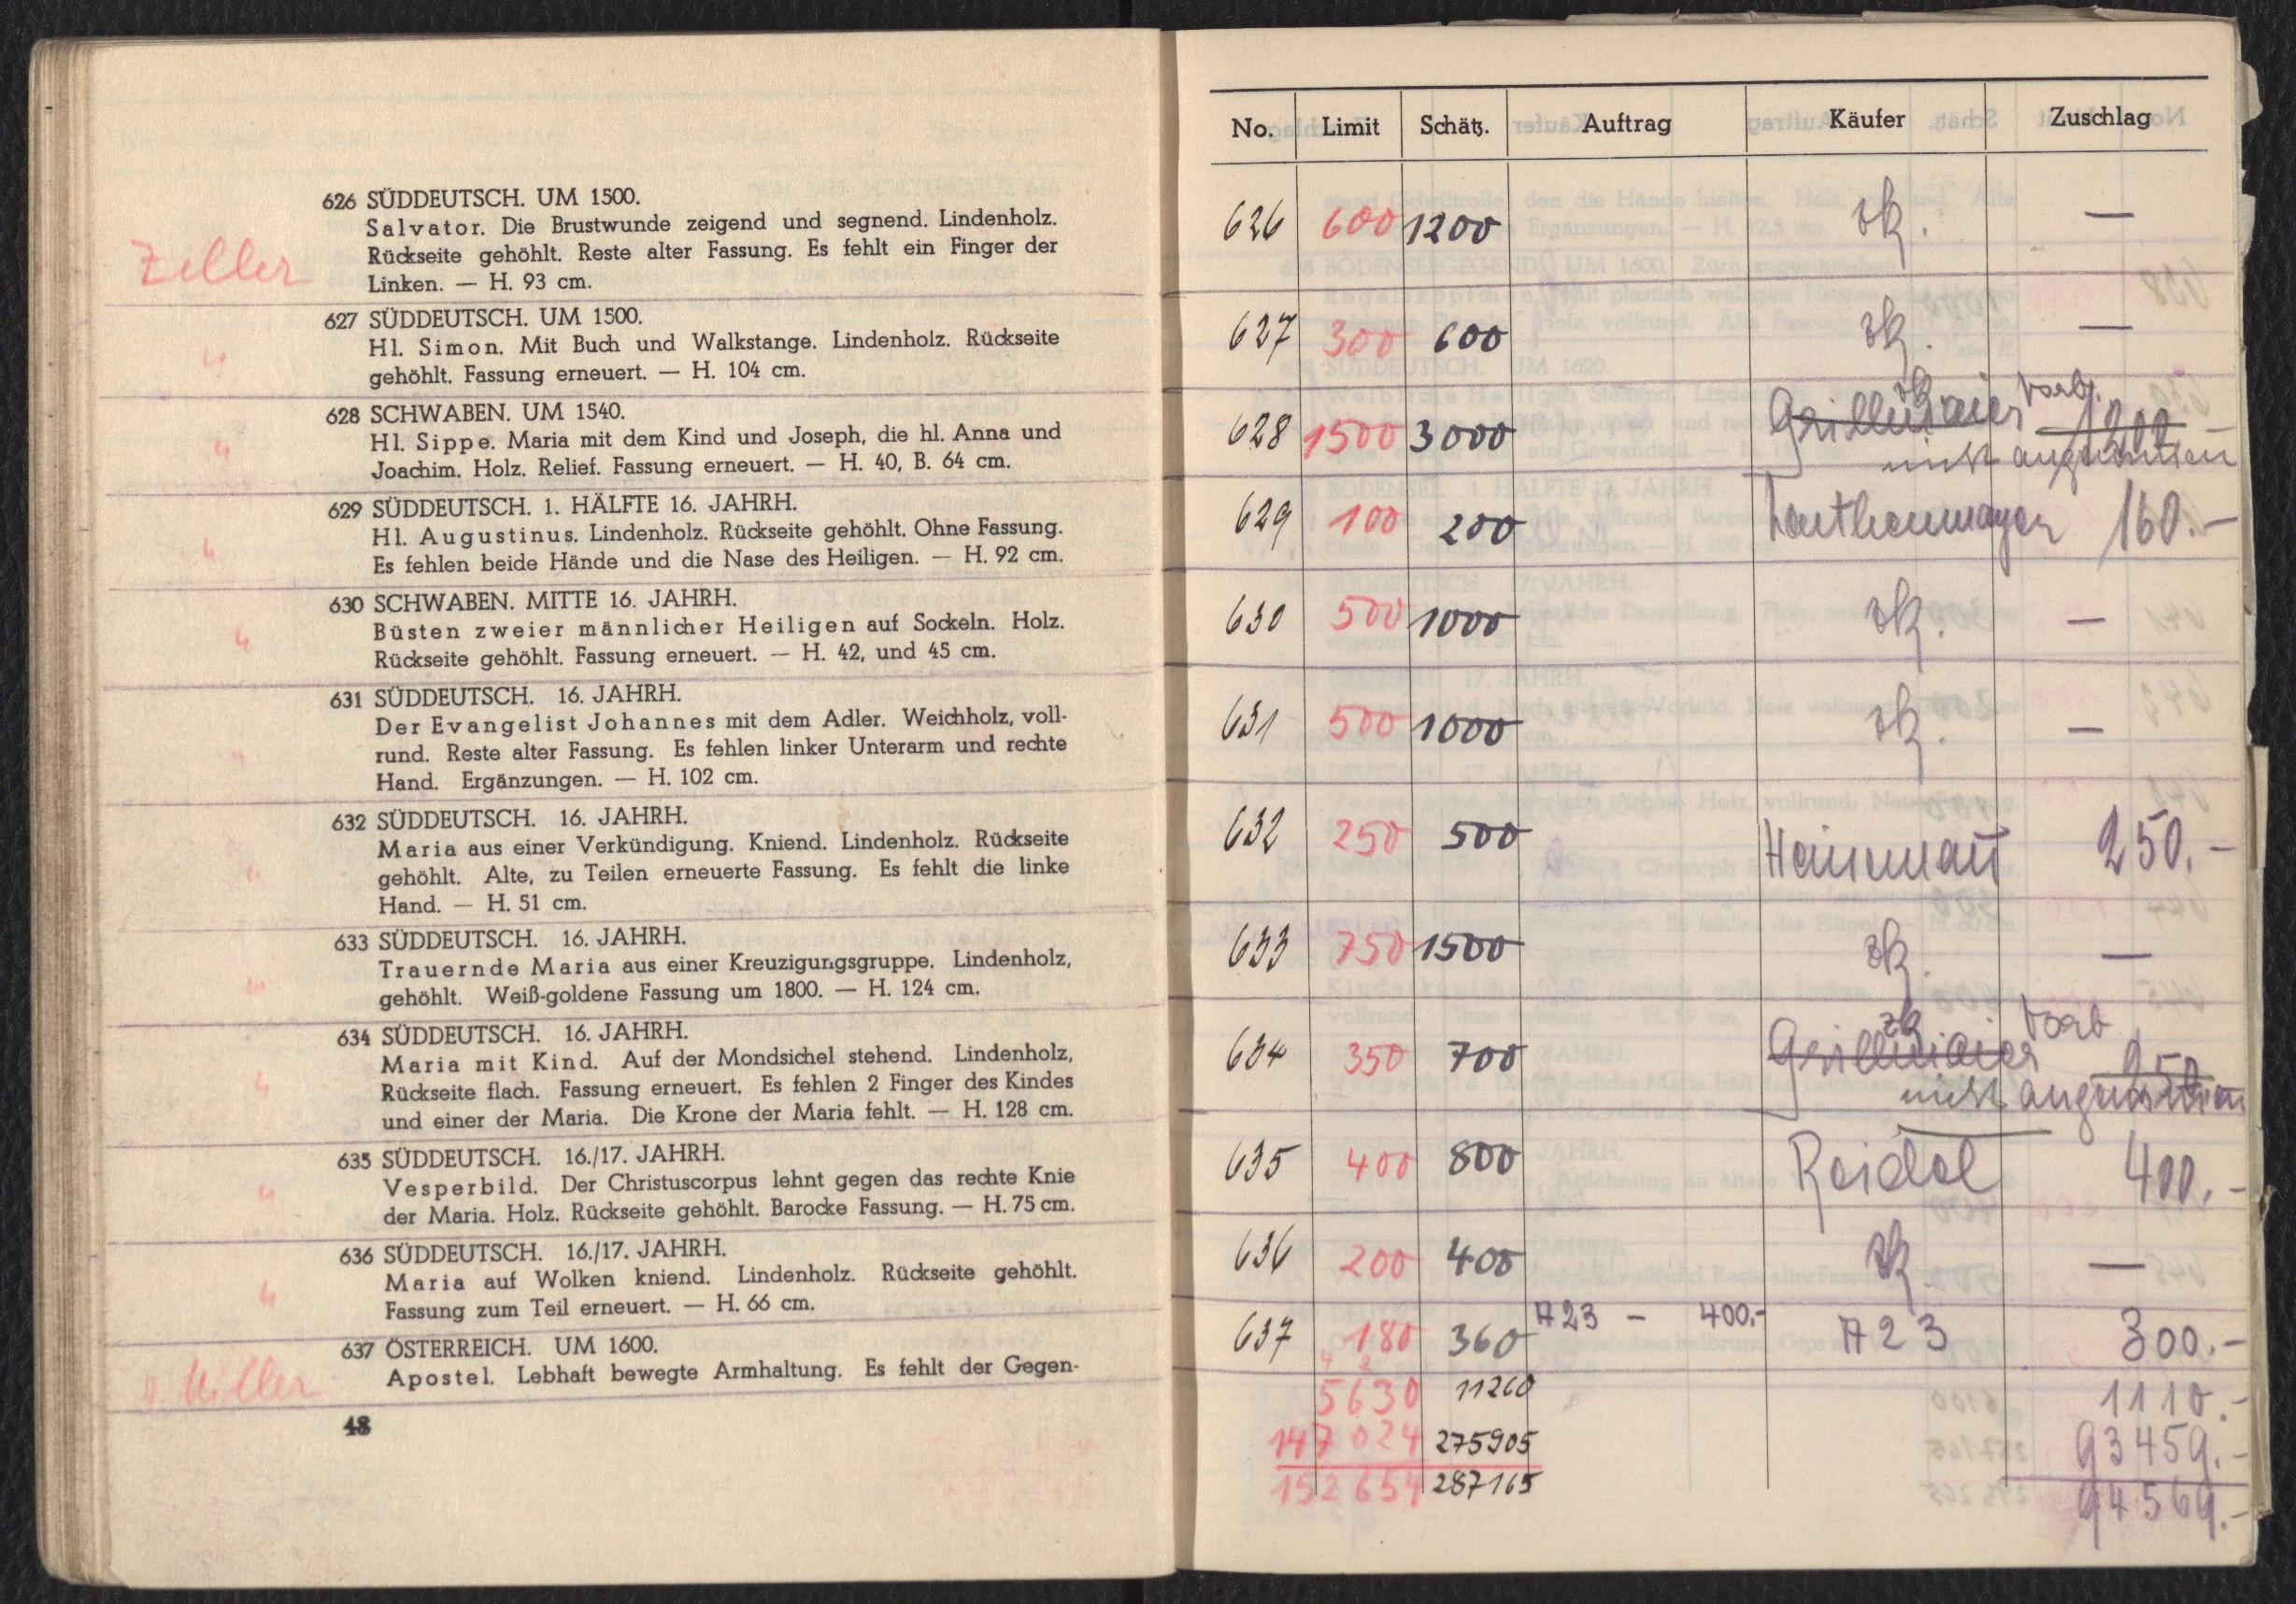 626 SÜDDEUTSCH. UM 1500.
Salvator. Die Brustwunde zeigend und segnend. Lindenholz.
Rückseite gehöhlt. Reste alter Fassung. Es fehlt ein Finger der
Linken. — H. 93 cm.
Zeller
627 SÜDDEUTSCH. UM 1500.
Hl. Simon. Mit Buch und Walkstange. Lindenholz. Rückseite
gehöhlt. Fassung erneuert. — H. 104 cm.
"
628 SCHWABEN. UM 1540.
Hl. Sippe. Maria mit dem Kind und Joseph, die hl. Anna und
Joachim. Holz. Relief. Fassung erneuert. — H. 40, B. 64 cm.
"
629 SÜDDEUTSCH. 1. HÄLFTE 16. JAHRH.
Hl. Augustinus. Lindenholz. Rückseite gehöhlt. Ohne Fassung.
Es fehlen beide Hände und die Nase des Heiligen. — H. 92 cm.
"
630 SCHWABEN. MITTE 16. JAHRH.
Büsten zweier männlicher Heiligen auf Sockeln. Holz.
Rückseite gehöhlt. Fassung erneuert. — H. 42, und 45 cm.
"
631 SÜDDEUTSCH. 16. JAHRH.
Der Evangelist Johannes mit dem Adler. Weichholz, voll-
rund. Reste alter Fassung. Es fehlen linker Unterarm und rechte
Hand. Ergänzungen. — H. 102 cm.
"
632 SÜDDEUTSCH. 16. JAHRH.
Maria aus einer Verkündigung. Kniend. Lindenholz. Rückseite
gehöhlt. Alte, zu Teilen erneuerte Fassung. Es fehlt die linke
Hand. — H. 51 cm.
"
633 SÜDDEUTSCH. 16. JAHRH.
Trauernde Maria aus einer Kreuzigungsgruppe. Lindenholz,
gehöhlt. Weiß-goldene Fassung um 1800. — H. 124 cm.
"
634 SÜDDEUTSCH. 16. JAHRH.
Maria mit Kind. Auf der Mondsichel stehend. Lindenholz,
Rückseite flach. Fassung erneuert. Es fehlen 2 Finger des Kindes
und einer der Maria. Die Krone der Maria fehlt. — H. 128 cm.
"
635 SÜDDEUTSCH. 16./17. JAHRH.
Vesperbild. Der Christuscorpus lehnt gegen das rechte Knie
der Maria. Holz. Rückseite gehöhlt. Barocke Fassung. — H. 75 cm.
"
636 SÜDDEUTSCH. 16./17. JAHRH.
Maria auf Wolken kniend. Lindenholz. Rückseite gehöhlt.
Fassung zum Teil erneuert. — H. 66 cm.
"
637 ÖSTERREICH. UM 1600.
Apostel. Lebhaft bewegte Armhaltung. Es fehlt der Gegen-
Miller
48
No. Limit Schätz. Auftrag Käufer Zuschlag
626 600 1200 zk. —
627 300 600 zk. —
zk Vorb.
628 1500 3000 Grillmaier 1200
nicht angenommen
629 100 200 Lauthenmayer 160.-
630 500 1000 zk. —
631 500 1000 zk. —
632 250 500 Heinemann 250.-
633 750 1500 zk. —
zk Vorb
634 350 700 Grillmaier 250
nicht angenommen
635 400 800 Reidel 400.-
636 200 400 zk. —
637 180 360 A23 - 400.- A23 300.-
5630 11260 1110.-
147024 275905 93459.-
152654 287165 94569.-